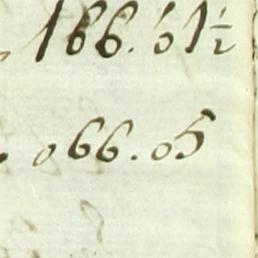 166.61½
066.05